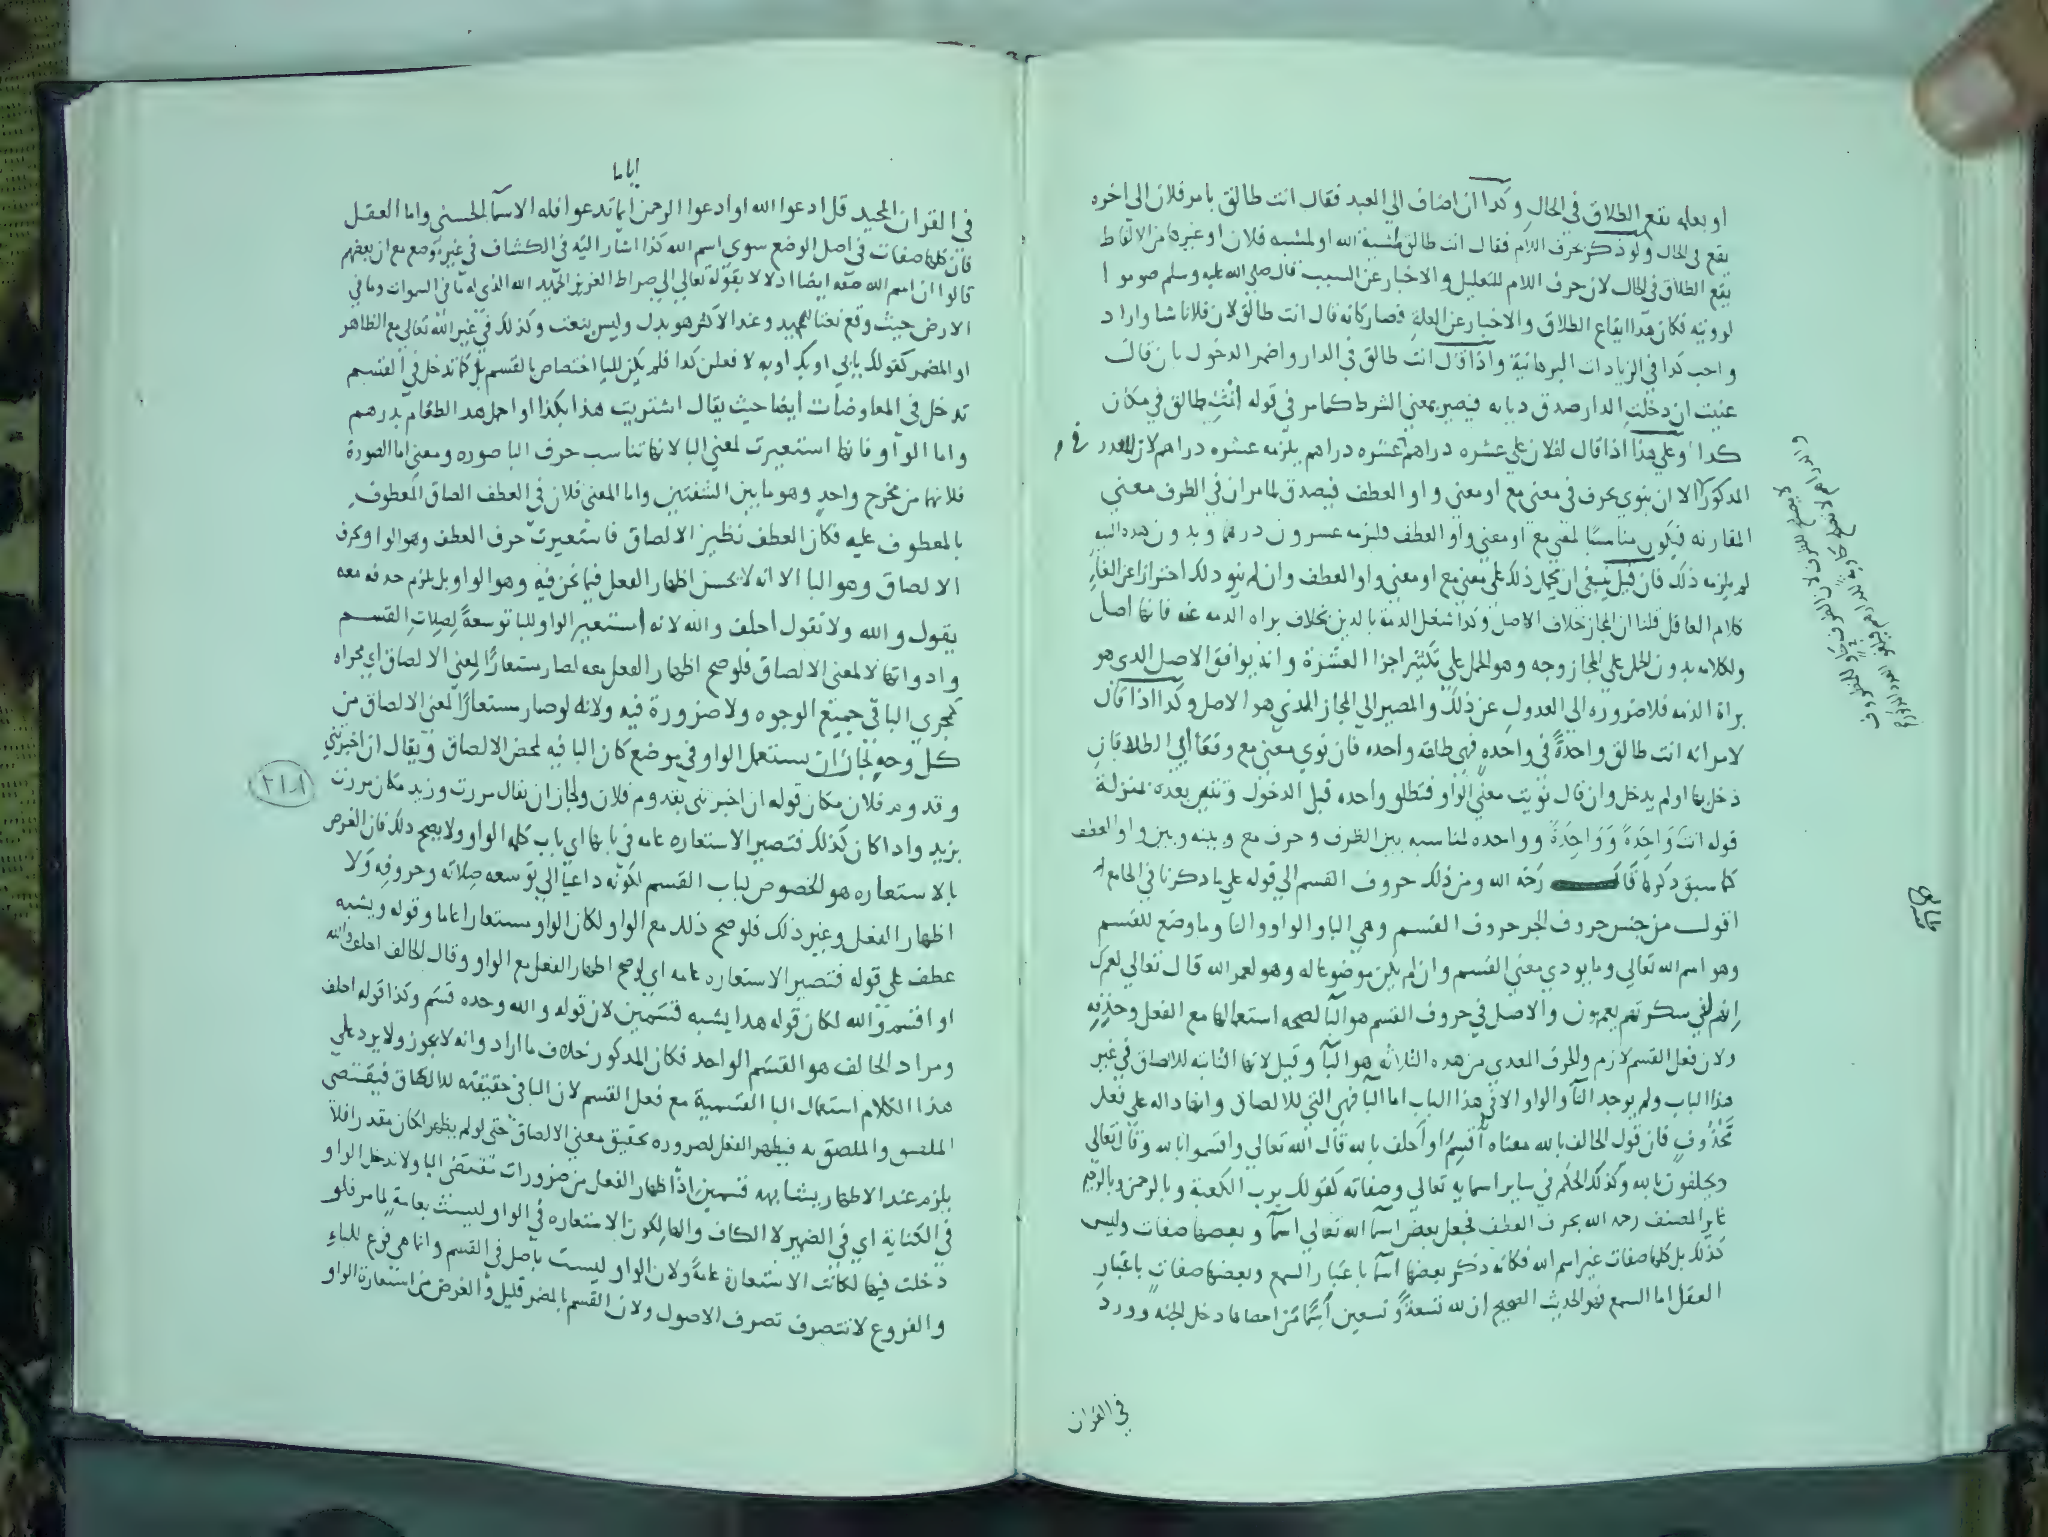 او بعلمه يقع الطلاق في الحال وكذا ان اضاف الي العبد فقال انت طالق بامر فلان الى اخره
يقع في الحال ولو ذكر بحرف اللام فقال انت طالق لمشية الله او لمشيه فلان او غيرها من الالفاظ
يقع الطلاق في الحال لان حرف اللام للتعليل والاخبار عن السبب قال صلى الله عليه وسلم صوموا
لرويته فكان هذا ايقاع الطلاق والاخبار عن العلة فصار كانه قال انت طالق لان فلانا شا واراد
واحب كذا في الزيادات البرهانية واذا قال انت طالق في الدار واضمر الدخول بان قال
عنيت ان دخلت الدار صدق ديانه فيصير بمعنى الشرط كما مر في قوله انت طالق في مكان
كذا وعلى هذا اذا قال لفلان على عشره دراهم في عشره دراهم يلزمه عشره دراهم لان العدد
المذكور الا ان ينوي بحرف في معنى مع او معنى واو العطف فيصدق لما مر ان في الظرف معنى
المقارنه فيكون مناسبا لمعنى مع او معنى واو العطف فلزمه عسرون درهما وبدون هذه النيه
لم يلزمه ذلك فان قيل ينبغى ان يحمل ذلك على معنى مع او معنى واو العطف وان لم ينو ذلك احترازا عن الغاء
كلام العاقل قلنا ان المجاز خلاف الاصل وكذا شغل الذمة بالدين بخلاف براه الذمه عنه فانها اصل
ولكلامه بدون الحمل على المجاز وجه وهو الحمل على تكثير اجزا العشرة وانه يوافق الاصل الذي هو
براة الذمه فلا ضروره الي العدول عن ذلك والمصير الي المجاز الذي هو الاصل وكذا اذا قال
لامراته انت طالق واحدةً في واحده فهي طالقه واحده فان نوى معنى مع وقعتا اي الطلاقان
دخل بها اولم يدخل وان قال نويت معنى الواو فتطلق واحده قبل الدخول وثنتين بعده بمنزلة
قوله انت واحدةً وواحِدةً وواحده لمناسبه بين الظرف وحرف مع وبينه وبين واو العطف
كما سبق ذكرها قال رحمه الله ومن ذلك حروف القسم الي قوله على ما ذكرنا في الجامع
اقول من جنس حروف الجر حروف القسم وهي البا والواو والتا وما وضع للقسم
وهو اسم الله تعالي وما يودي معنى القسم وان لم يكن موضوعا له وهو لعمر الله قال تعالي لعمرك
انهم لفي سكرتهم يعمهون والاصل في حروف القسم هو البا لصحه استعمالها مع الفعل وحذفه
ولان فعل القسم لازم والحرف المعدي من هذه الثلاثه هو البا وقيل لانها الثابته للالصاق في غير
هذا الباب ولم يوجد التا والواو الا في هذا الباب اما البا فهي التي للالصاق وانها داله على فعل
محذوفٍ فان قول الحالف بالله معناه اُقسِمُ او احلف بالله قال الله تعالي واقسموا بالله وقال تعالي
يحلفون بالله وكذلك الحكم في ساير اسمايه تعالي وصفاته كقولك برب الكعبة وبالرحمن وبالرحيم
غاير المصنف رحمه الله بحرف العطف فجعل بعض اسما الله تعالي اسما وبعضها صفات وليس
كذلك بل كلها صفات غير اسم الله فكانه ذكر بعضها اسما باعتبار السمع وبعضها صفات باعتبار
العقل اما السمع فهو الحديث الصحيح ان لله تسعةً وتسعين اسمًا من احصاها دخل الجنه وورد
في القران
طالع
اياما
في القران المجيد قل ادعوا الله او ادعوا الرحمن ايا تدعوا فله الاسما الحسنى واما العقل
فان كلها صفات في اصل الوضع سوى اسم الله كذا اشار اليه في الكشاف في غير موضع مع ان بعضهم
قالوا ان اسم الله صفه ايضا استدلالا بقوله تعالي الي صراط العزيز الحميد الله الذي له ما في السموات وما في
الارض حيث وقع نعتا للحميد وعند الاكثر هو بدل وليس بنعت وكذلك في غير الله تعالى مع الظاهر
او المضمر كقولك بابي او بك او به لا فعلن كذا فلم يكن للبا اختصاص بالقسم بل كما تدخل في القسم
تدخل في المعاوضات ايضا حيث يقال اشتريت هذا بكذا او احمل هذا الطعام بدرهم
واما الواو فانها استعيرت لمعنى البا لانها تناسب حرف البا صوره ومعنى اما الصورة
فلانها من مخرج واحدٍ وهو ما بين الشفتين واما المعنى فلان في العطف الصاق المعطوف
بالمعطوف عليه فكان العطف نظير الالصاق فاستعيرت حرف العطف وهو الواو بحرف
الالصاق وهو البا الا انه لا يحسن اظهار الفعل فيما نحن فيه وهو الواو بل يلزم حذفه معه
يقول والله ولا تقول احلف والله لانه استعير الواو للبا توسعةً لصلاتِ القسم
وادواتها لا لمعنى الالصاق فلو صح اظهار الفعل معه لصار مستعارًا لمعنى الالصاق اي مجراه
كمجرى البا في جميع الوجوه ولا ضرورة فيه ولانه لو صار مستعارًا لمعنى الالصاق من
كل وجهٍ لجاز ان يستعمل الواو في موضع كان البا فيه لمحض الالصاق ويقال ان اخبرتني
وقدوم فلان مكان قوله ان اخبرتنى بقدوم فلان ولجاز ان يقال مررت وزيد مكان مررت
بزيد واذا كان كذلك فتصير الاستعاره عامه في بابها اي باب كلمه الواو ولا يصح ذلك فان الغرض
بالاستعاره هو الخصوص لباب القسم لكونه داعيًا الي توسعه صلاته وحروفه ولا
اظهار الفعل وغير ذلك فلو صح ذلك مع الواو لكان الواو مستعارا عاما وقوله ويشبه
عطف على قوله فتصير الاستعاره عامه اي لو صح اظهار الفعل مع الواو وقال الحالف احلف والله
او اقسم والله لكان قوله هذا يشبه قسمين لان قوله والله وحده قسم وكذا قوله احلف
ومراد الحالف هو القسم الواحد فكان المذكور خلاف ما اراد وانه لا يجوز ولا يرد على
هذا الكلام استعمال البا القسمية مع فعل القسم لان البا في حقيقته للالصاق فيقتضى
الملصق والملصق به فيظهر الفعل لضروره تحقيق معنى الالصاق حتى لو لم يظهر لكان مقدرا فلا
يلزم عند الاظهار يشابهه قسمين اذ اظهار الفعل من ضرورات مقتضى البا ولا تدخل الواو
في الكناية اي في الضمير لا الكاف والها لكون الاستعاره في الواو ليست بعامةٍ لما مر فلو
دخلت فيها لكانت الاستعارة عامةً ولان الواو ليست باصل في القسم وانما هي فرع للباءِ
والفروع لا تتصرف تصرف الاصول ولان القسم بالمضمر قليل والغرض من استعارة الواو